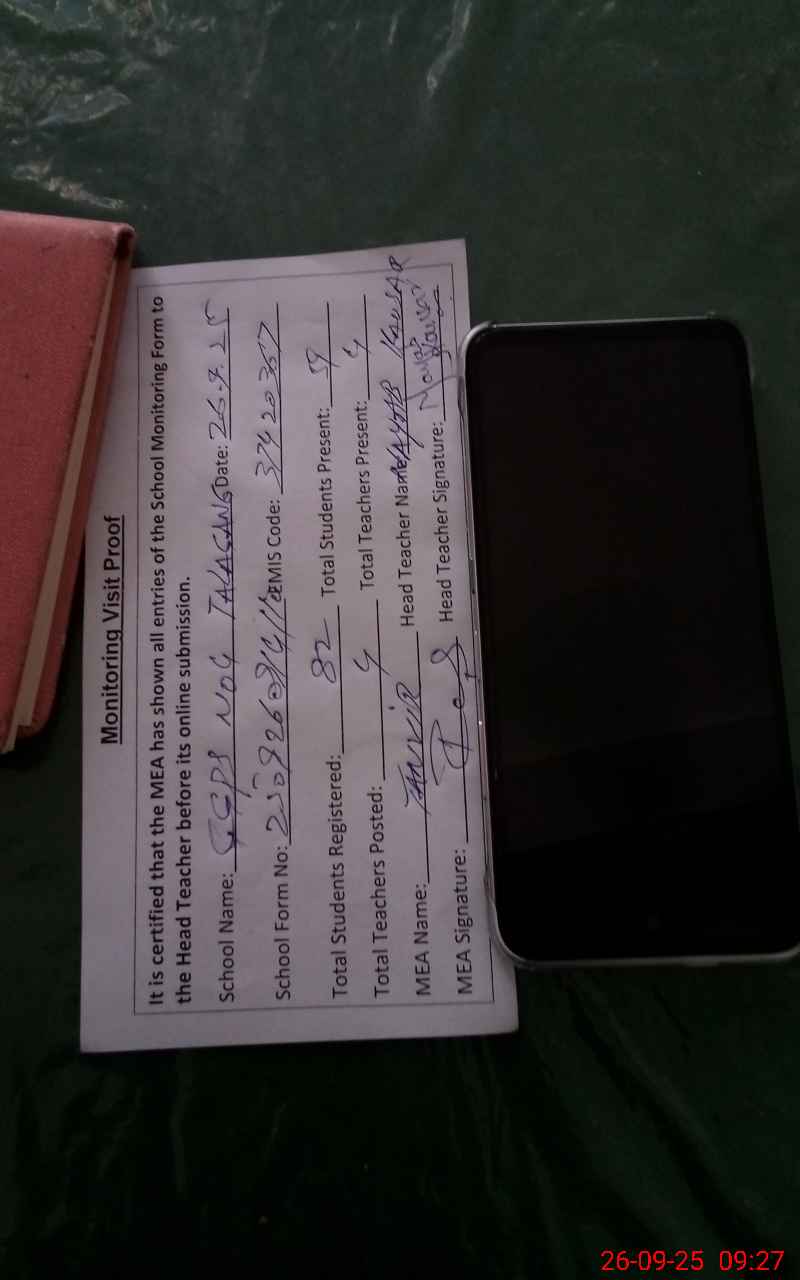 Monitoring Visit Proof
It is certified that the MEA has shown all entries of the School Monitoring Form to
the Head Teacher before its online submission.
School Name: GGPS NO 4 TALAGANG Date: 26.9.25
School Form No: EMIS Code: 37420357
Total Students Registered: 82 Total Students Present: 59
Total Teachers Posted: 4 Total Teachers Present: 4
MEA Name: TANVIR Head Teacher Name: KAUSAR
MEA Signature: Head Teacher Signature: Kausar
26-09-25 09:27